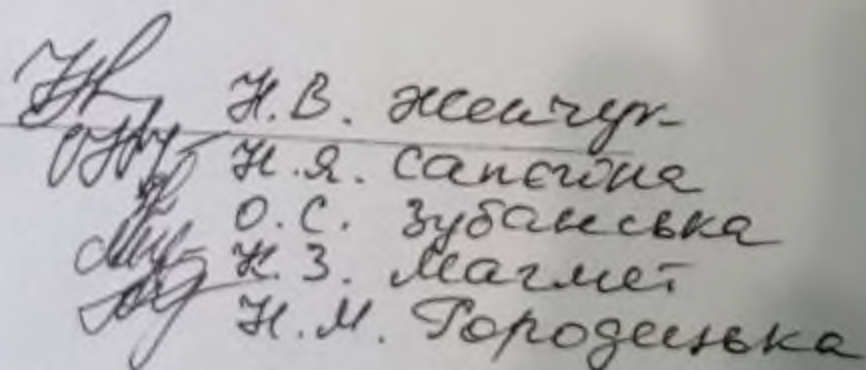 Н.В. Жемчуг
Н.Я. Сапєгіна
О.С. Зубанська
Н.З. Магмет
Н.М. Городецька